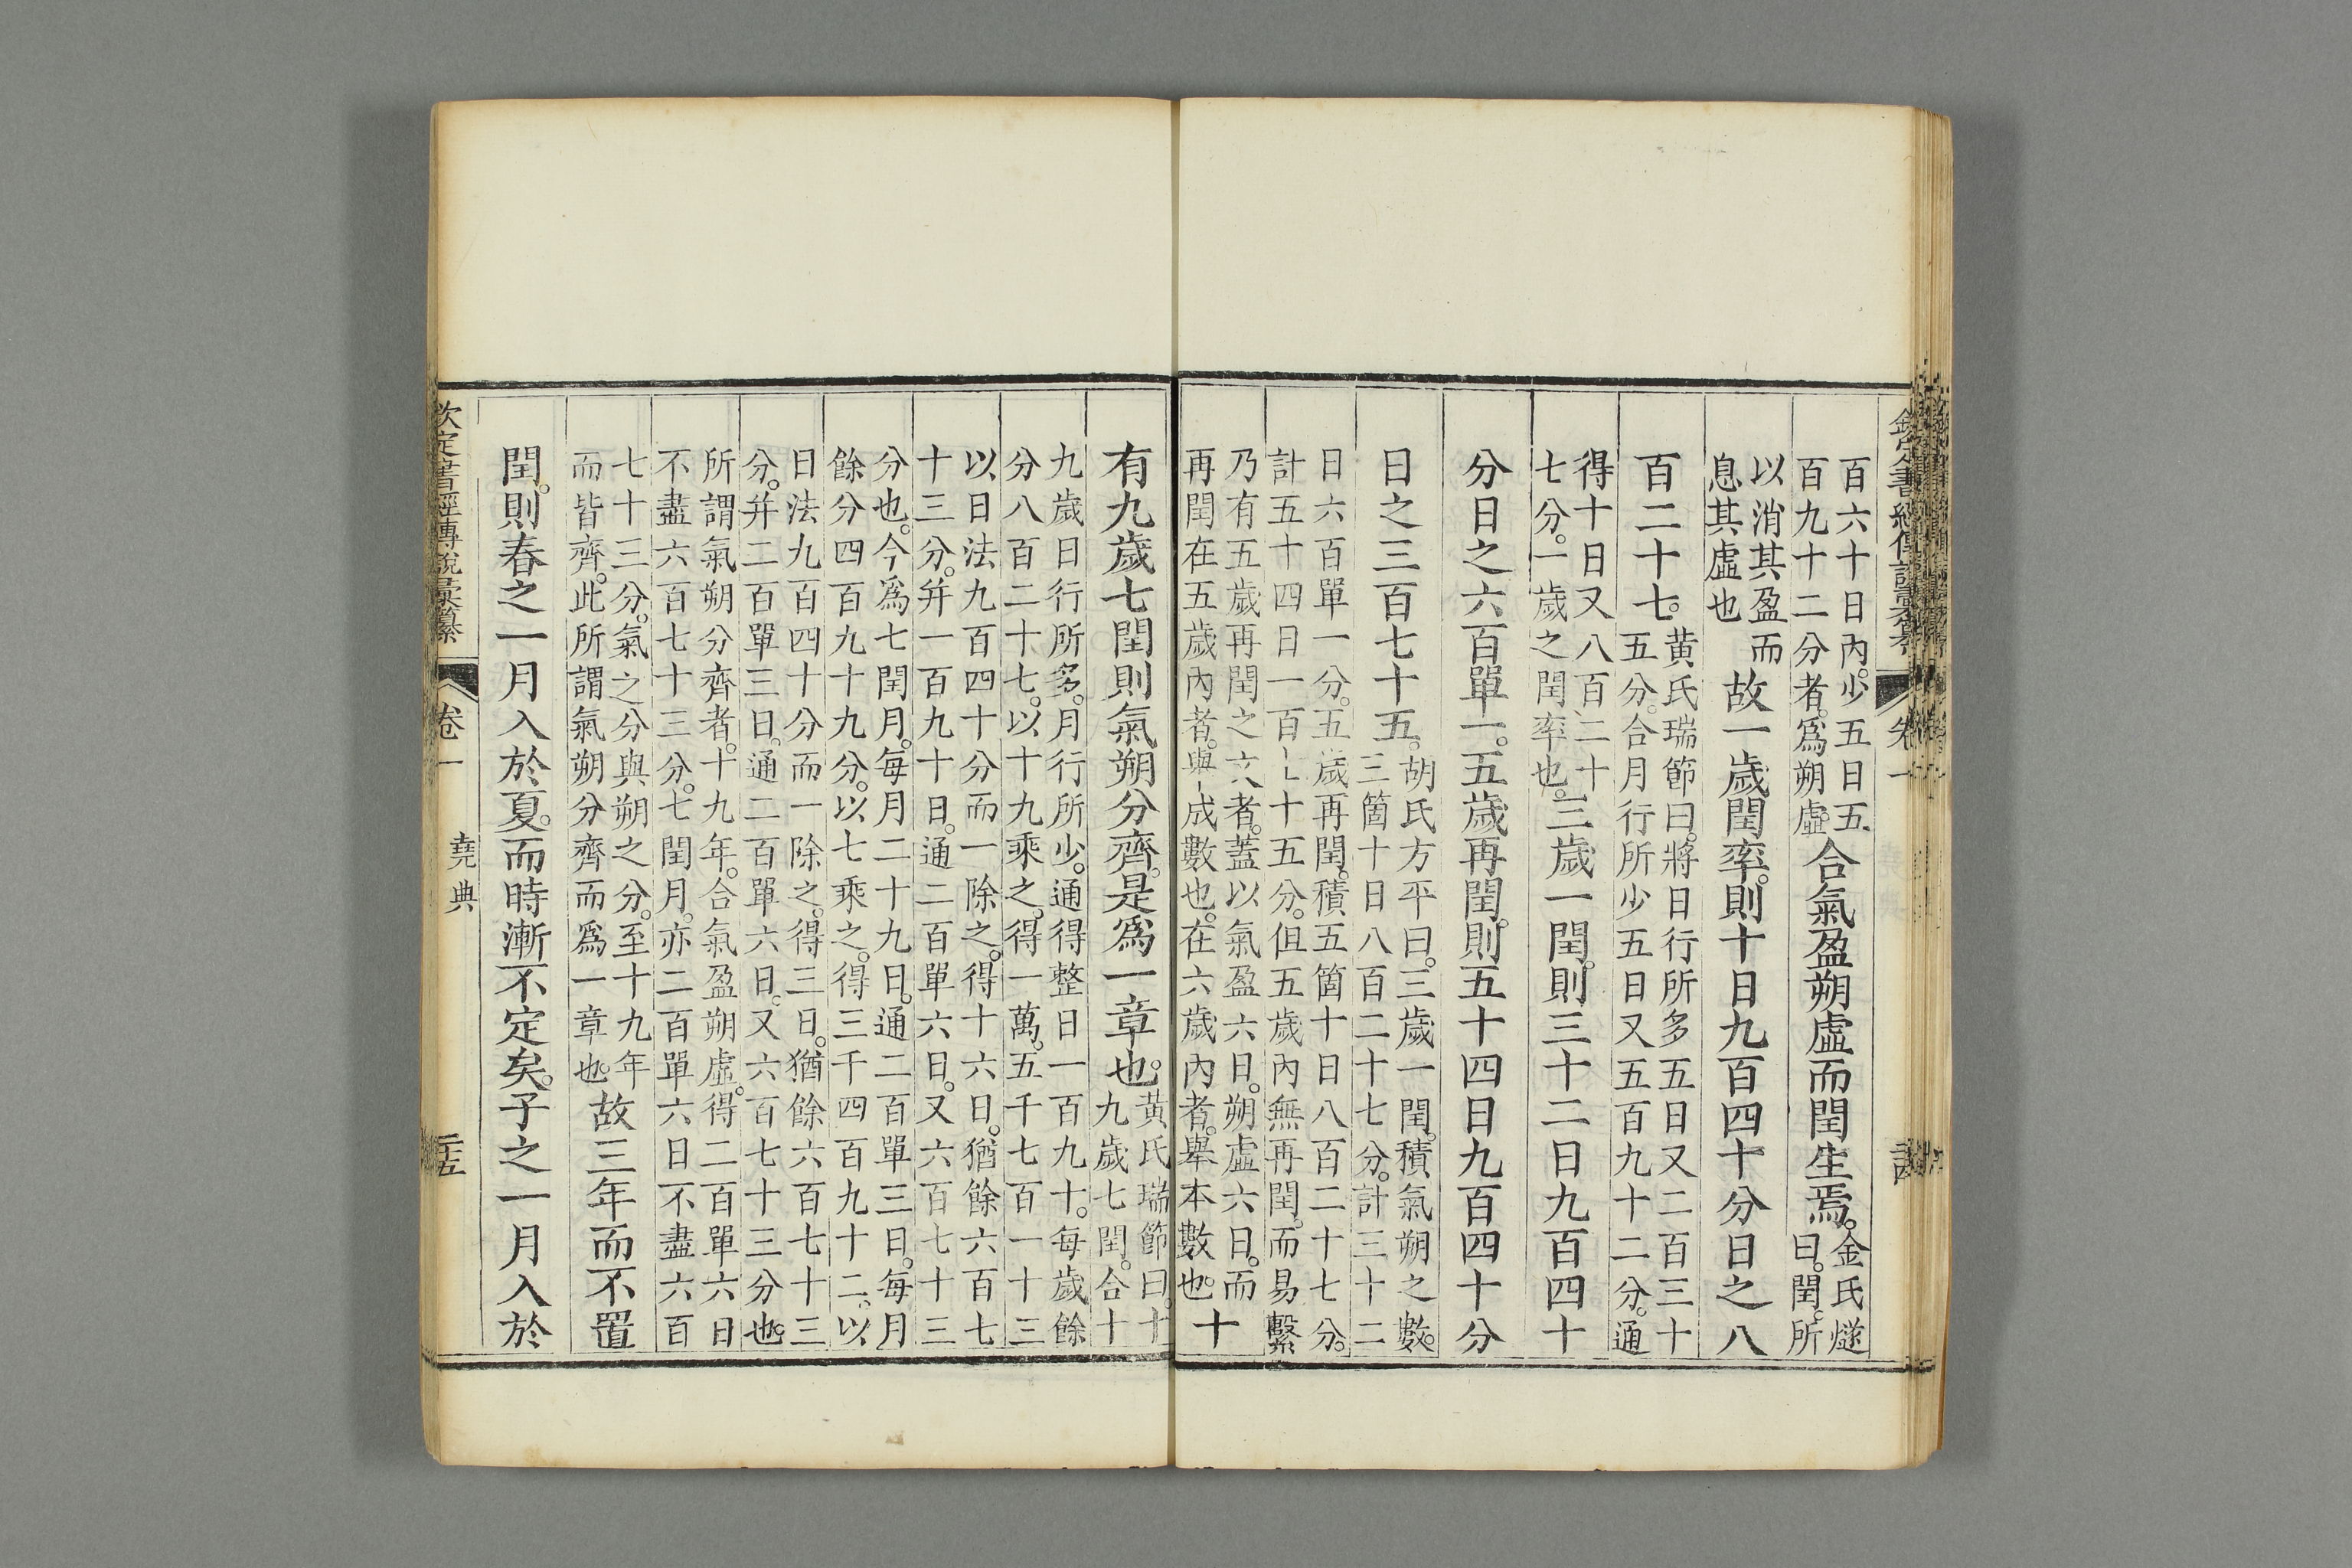 百六十日內。少五日五
百九十二分者。爲朔虛。
合氣盈朔虛而閏生焉。
金氏燧
曰。閏。所
以消其盈而
息其虛也
故一歲閏率。則十日九百四十分日之八
百二十七。
黃氏瑞節曰。將日行所多五日又二百三十
五分。合月行所少五日又五百九十二分。通
得十日又八百二十
七分。一歲之閏率也。
三歲一閏。則三十二日九百四十
分日之六百單一。五歲再閏。則五十四日九百四十分
日之三百七十五。
胡氏方平曰。三歲一閏。積氣朔之數。
三箇十日八百二十七分。計三十二
日六百單一分。五歲再閏。積五箇十日八百二十七分。
計五十四日一百七十五分。但五歲內無再閏。而易繫
乃有五歲再閏之文者。蓋以氣盈六日。朔虛六日。而
再閏在五歲內者。與成數也。在六歲內者。舉本數也。
十
有九歲七閏。則氣朔分齊。是爲一章也。
黃氏瑞節曰。十
九歲七閏。合十
九歲日行所多。月行所少。通得整日一百九十。每歲餘
分八百二十七。以十九乘之。得一萬。五千七百一十三
以日法九百四十分而一除之。得十六日。猶餘六百七
十三分。幷一百九十日。通二百單六日。又六百七十三
分也。今爲七閏月。每月二十九日。通二百單三日。每月
餘分四百九十九分。以七乘之。得三千四百九十二。以
日法九百四十分而一除之。得三日。猶餘六百七十三
分。幷二百單三日。通二百單六日。又六百七十三分也。
所謂氣朔分齊者。十九年。合氣盈朔虛。得二百單六日
不盡六百七十三分。七閏月。亦二百單六日不盡六百
七十三分。氣之分與朔之分。至十九年
而皆齊。此所謂氣朔分齊而爲一章也。
故三年而不置
閏。則春之一月入於夏。而時漸不定矣。子之一月入於
欽定書經傳說彙纂
卷一
堯典
二十五